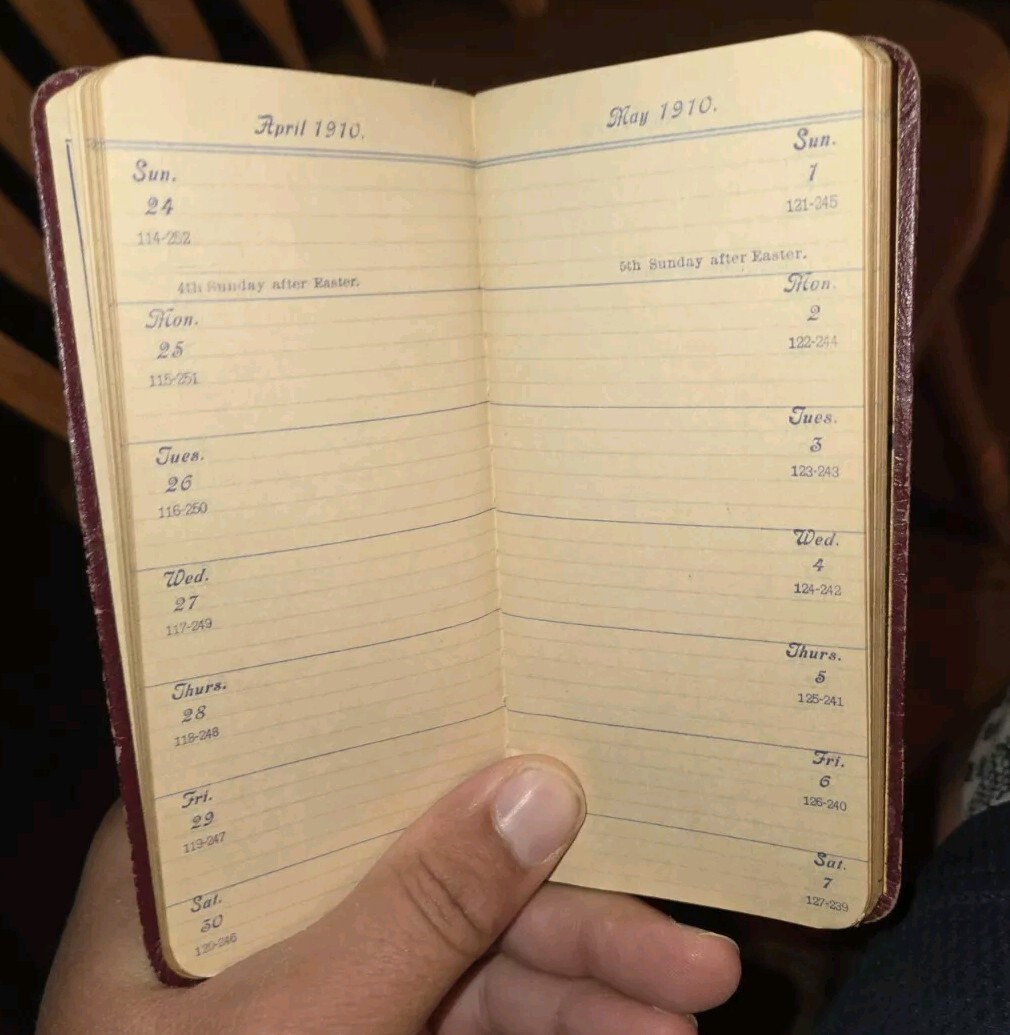 April 1910.
Sun.
24
114-252
4th Sunday after Easter.
Mon.
25
115-251
Tues.
26
116-250
Wed.
27
117-249
Thurs.
28
118-248
Fri.
29
119-247
Sat.
30
120-246
May 1910.
Sun.
1
121-245
5th Sunday after Easter.
Mon.
2
122-244
Tues.
3
123-243
Wed.
4
124-242
Thurs.
5
125-241
Fri.
6
126-240
Sat.
7
127-239